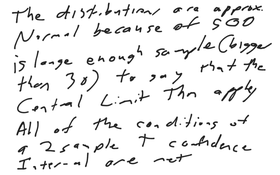 The distribution are approx.
Normal because of 500
is large enough sample (bigger
than 30) to say that the
Central Limit Thm apply
All of the conditions of
a 2 sample T confidence
Interval are met